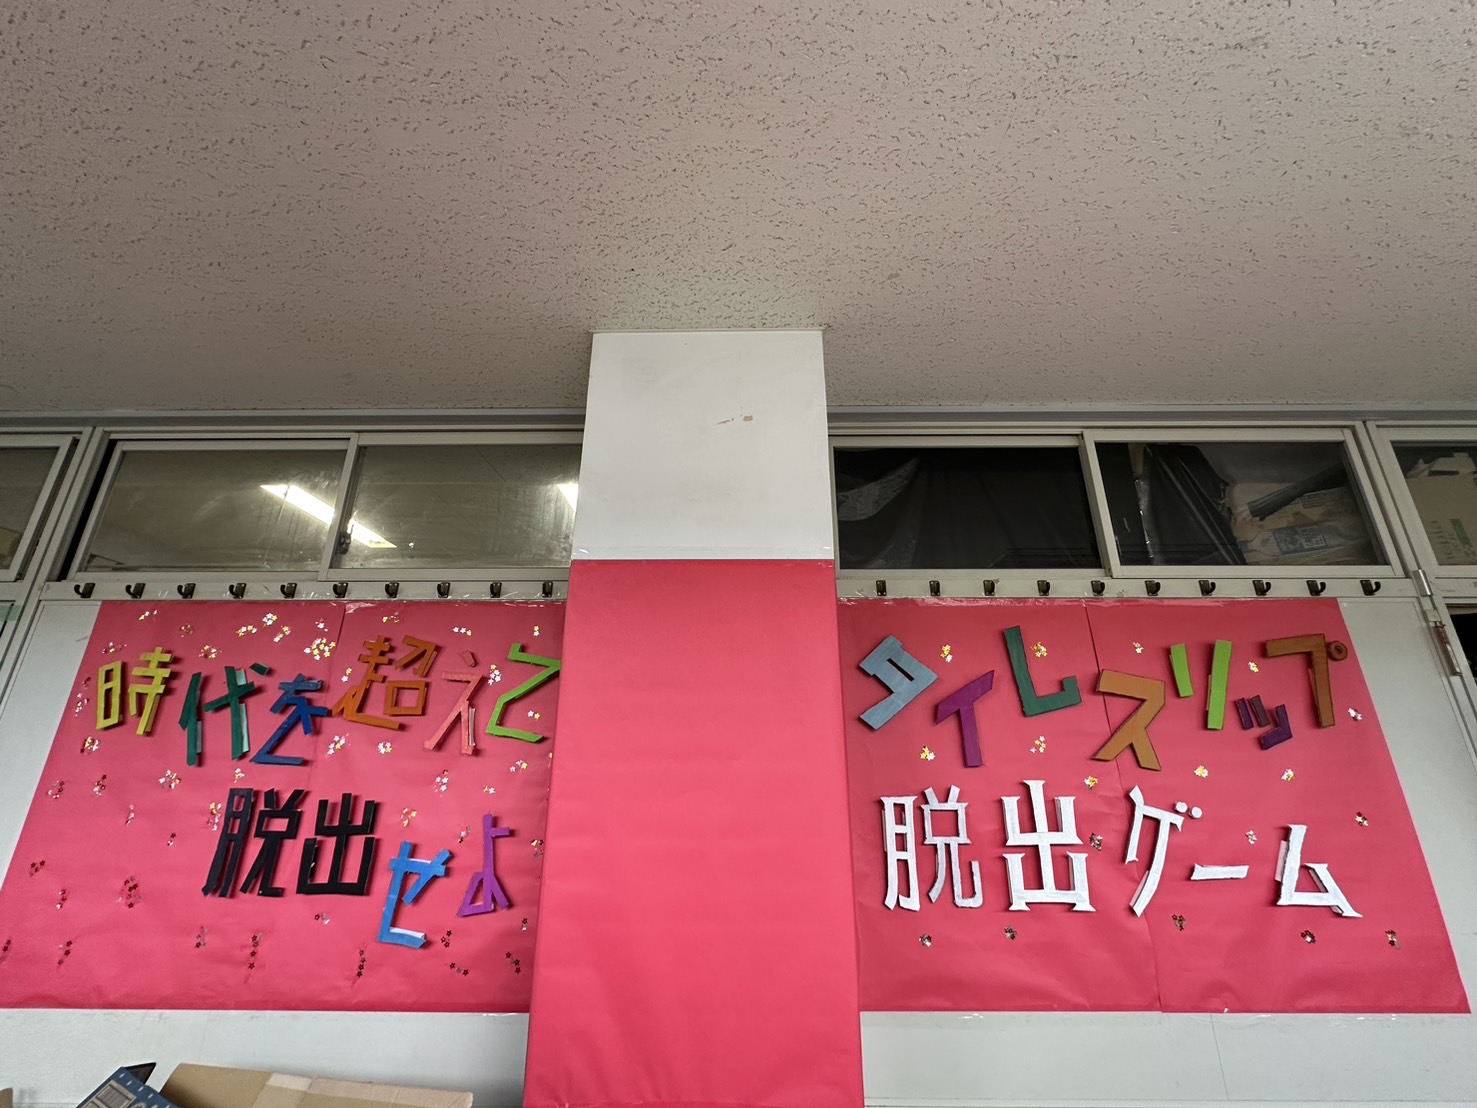 時代を超えて
脱出せよ
タイムスリップ
脱出ゲーム